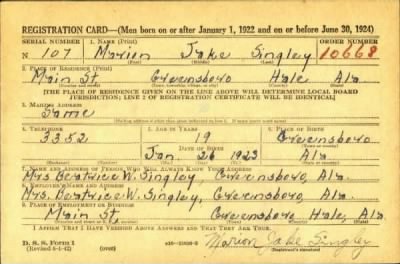 REGISTRATION CARD—(Men born on or after January 1, 1922 and on or before June 30, 1924)
SERIAL NUMBER 1. NAME (Print) ORDER NUMBER
N 107 Marion Jake Singley 10668
(First) (Middle) (Last)
2. PLACE OF RESIDENCE (Print)
Main St. Greensboro Hale Ala
(Number and street) (Town, township, village, or city) (County) (State)
[THE PLACE OF RESIDENCE GIVEN ON THE LINE ABOVE WILL DETERMINE LOCAL BOARD
JURISDICTION; LINE 2 OF REGISTRATION CERTIFICATE WILL BE IDENTICAL]
3. MAILING ADDRESS
Same
[Mailing address if other than place indicated on line 2. If same insert word same]
4. TELEPHONE 5. AGE IN YEARS 6. PLACE OF BIRTH
3352 19 Greensboro
DATE OF BIRTH
Jan. 26 1923 Ala
7. NAME AND ADDRESS OF PERSON WHO WILL ALWAYS KNOW YOUR ADDRESS
Mrs Beatrice W. Singley, Greensboro, Ala.
8. EMPLOYER'S NAME AND ADDRESS
Mrs. Beatrice W. Singley, Greensboro, Ala.
9. PLACE OF EMPLOYMENT OR BUSINESS
Main St. Greensboro, Hale, Ala
(Number and street or R. F. D. number) (Town) (County) (State)
I AFFIRM THAT I HAVE VERIFIED ABOVE ANSWERS AND THAT THEY ARE TRUE.
D. S. S. Form 1
(Revised 6-1-42) (over) Marion Jake Singley
(Registrant's signature)